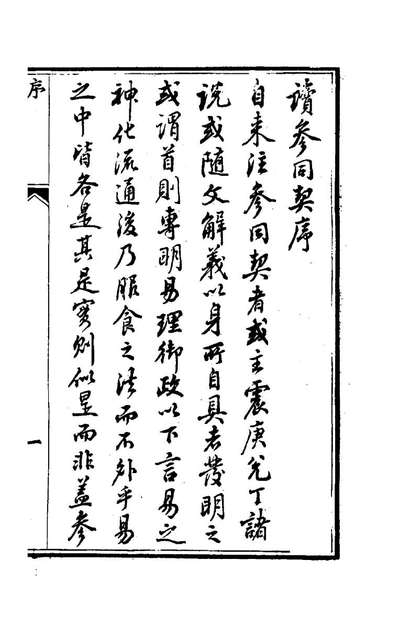 讀參同契序
自来注參同契者或主震庚兌丁諸
说或随文解義以身所自具者發明之
或謂首則專明易理御政以下言易之
神化流通後乃服食之法而不外乎易
之中皆各是其是實则似是而非盖参
序
一